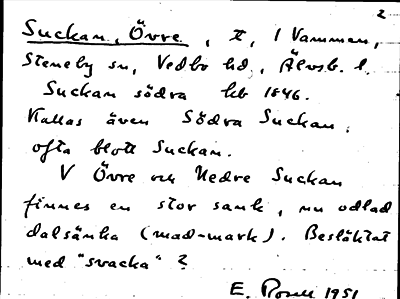 2
Suckan, Övre, tt, I Vamman,
Steneby sn, Vedbo hd, Älvsb. l.
Suckan södra hb 1846.
Kallas även Södra Suckan,
ofta blott Suckan.
V Övre och Nedre Suckan
finnes en stor sank, nu odlad
dalsänka (mad-mark). Besläktat
med "svacka" ?
E. 1951